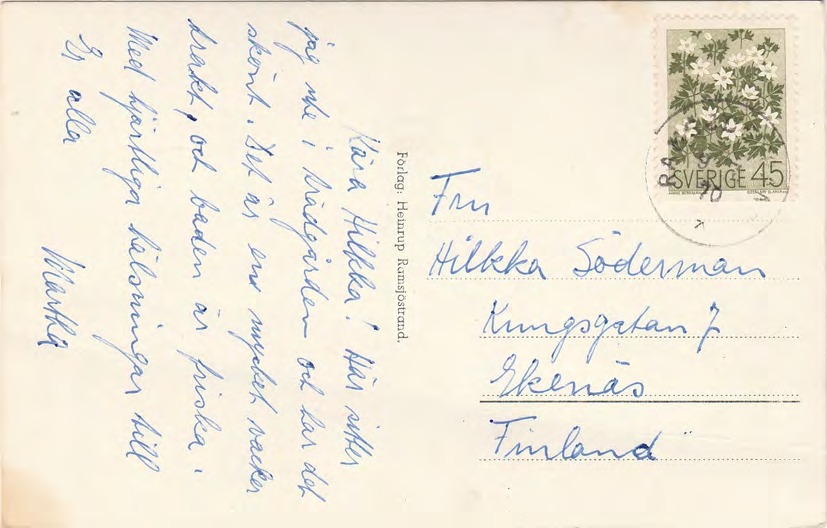 Kära Hilkka! Här sitter
jag ute i trädgården och har det
skönt. Det är en mycket vacker
trakt, och baden är friska.
Med hjärtliga hälsningar till
Er alla
Martha
Förlag: Heinrup Ramsjöstrand.
SVERIGE 45
70
Fru
Hilkka Söderman
Kungsgatan 7
Ekenäs
Finland